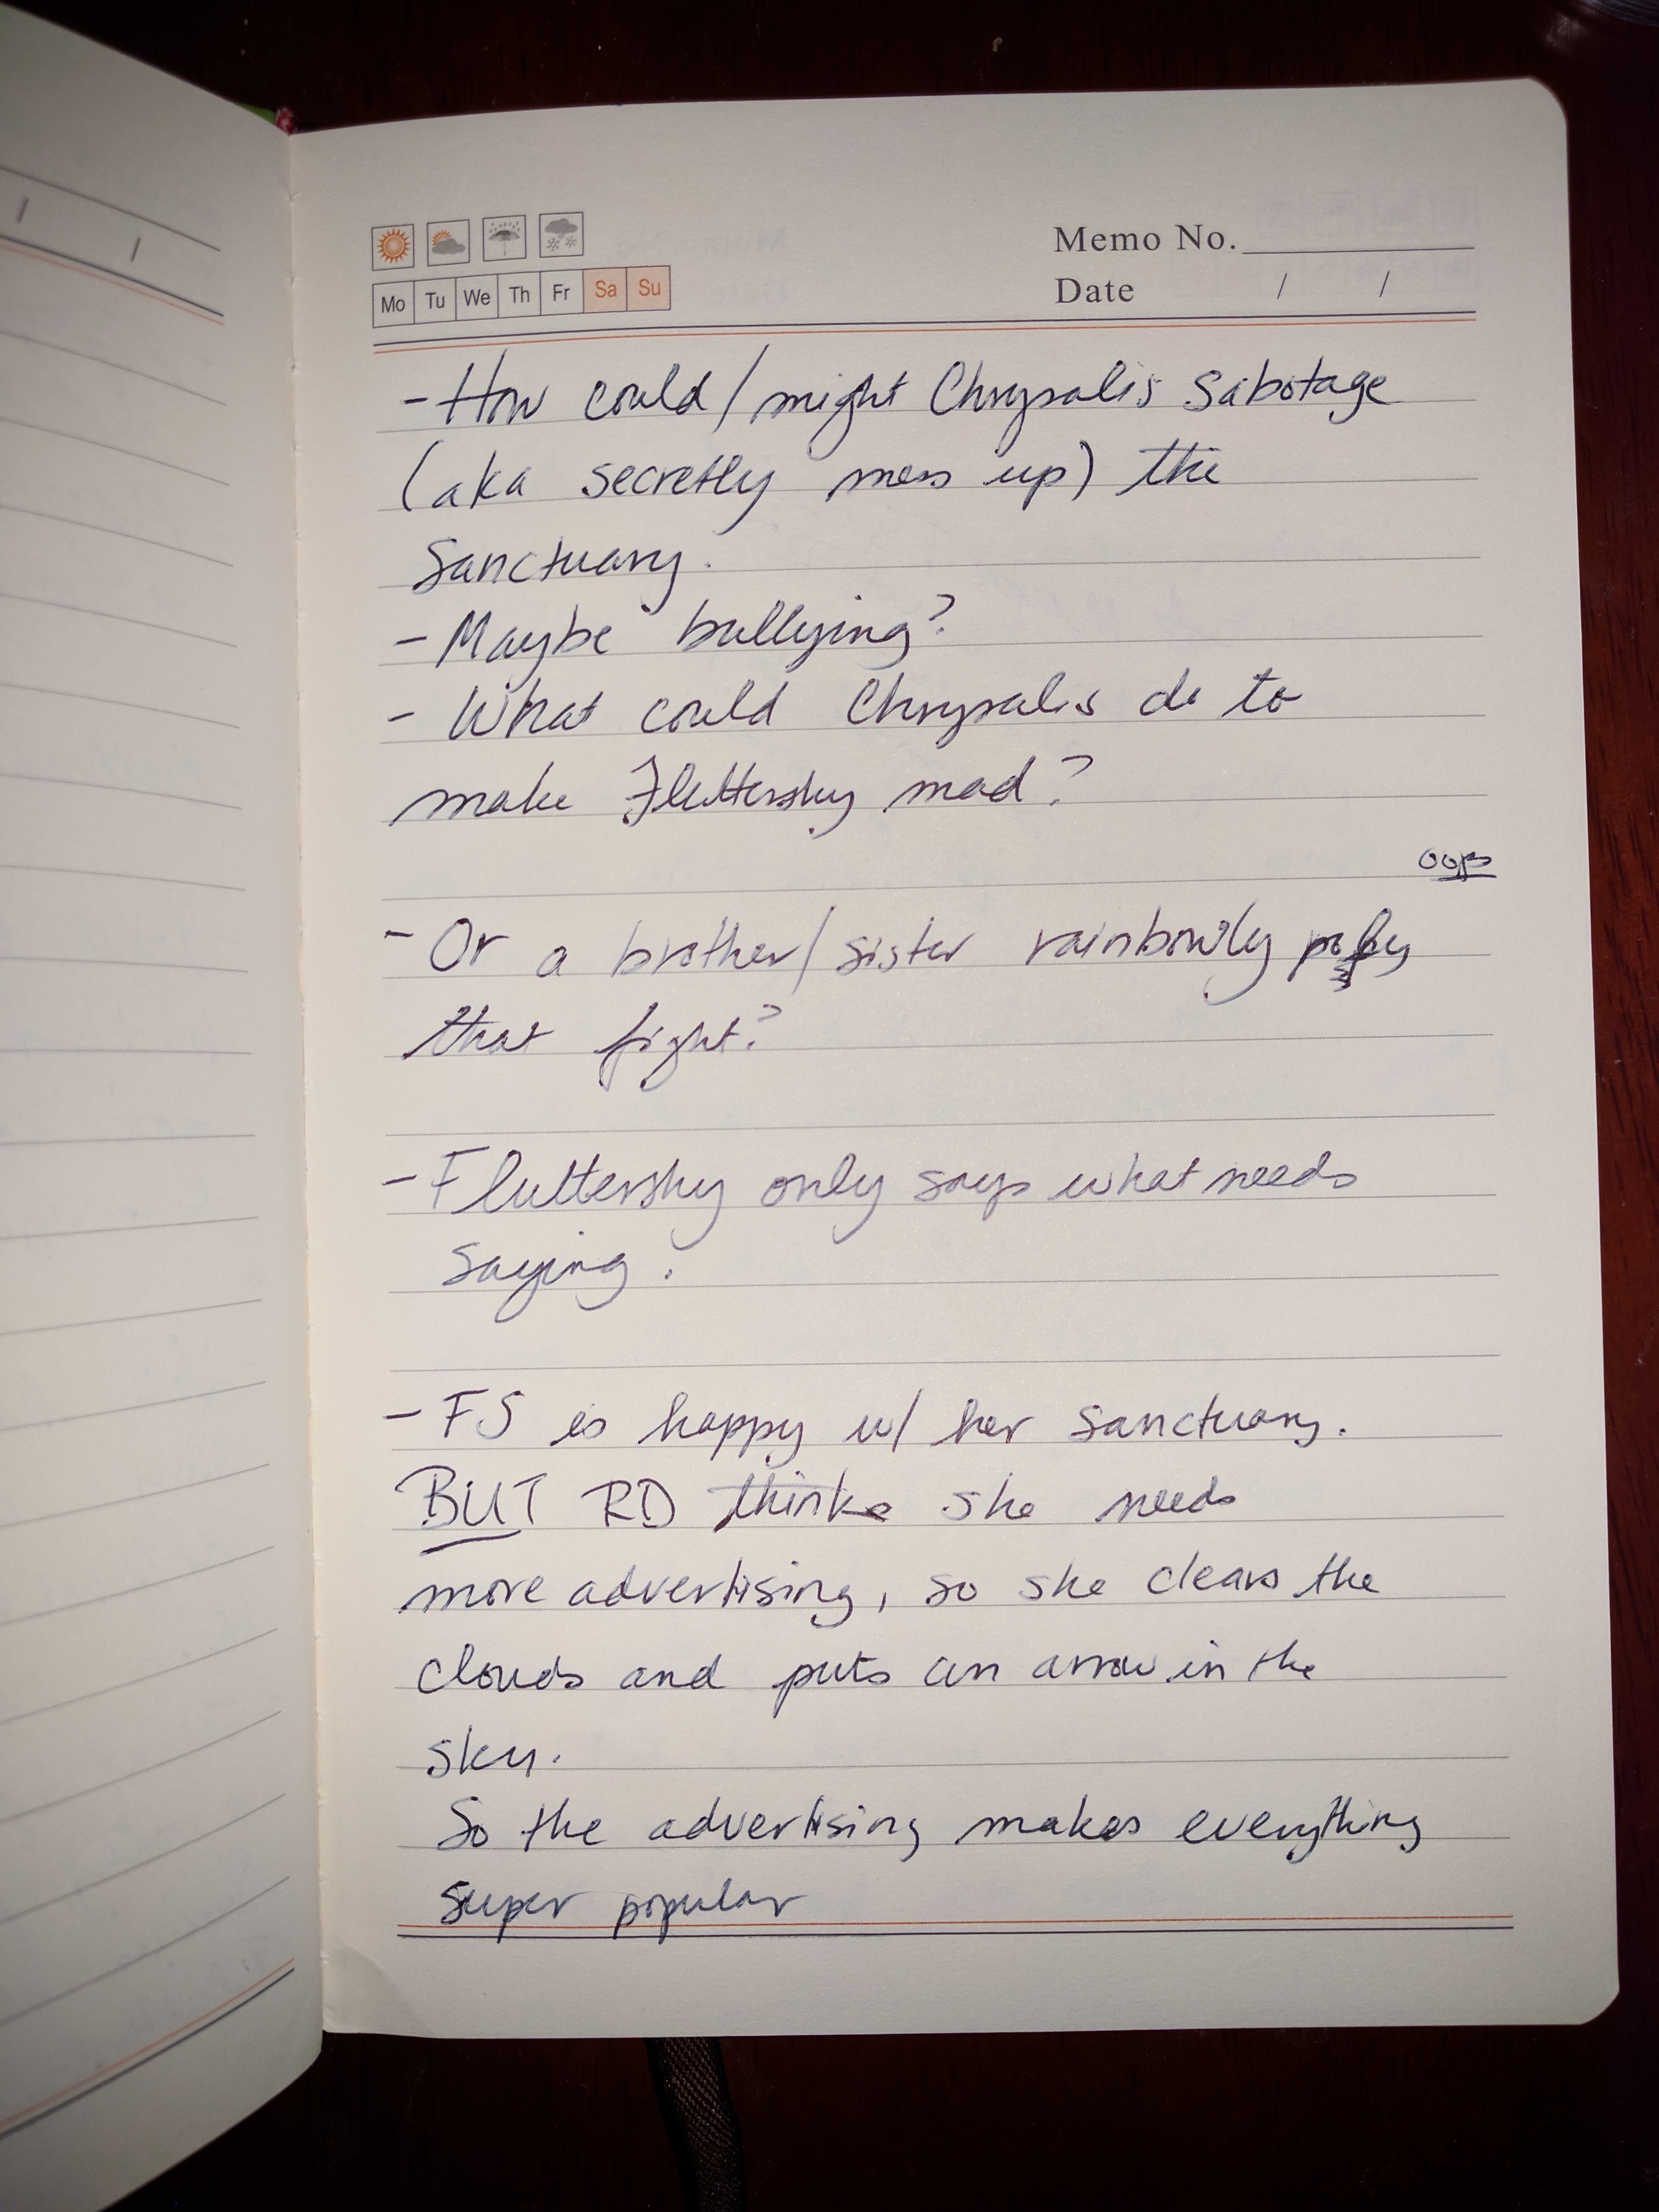 Memo No.
Mo Tu We Th Fr Sa Su
Date / /
- How could/might Chrysalis Sabotage
(aka secretly mess up) the
Sanctuary.
- Maybe bullying?
- What could Chrysalis do to
make Fluttershy mad?
oops
- Or a brother/sister rainbowly
that fight?
- Fluttershy only says what needs
saying.
- FS is happy w/ her sanctuary.
BUT RD thinks she needs
more advertising, so she clears the
clouds and puts an arrow in the
sky.
So the advertising makes everything
super popular